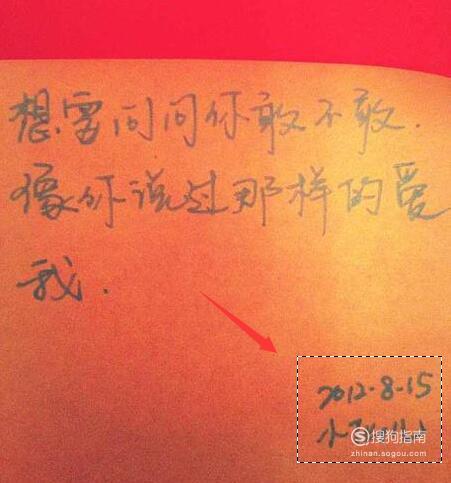 想雷问问你敢不敢.
像你说过那样的爱
我.
2012-8-15
小
搜狗指南
zhinan.sogou.com